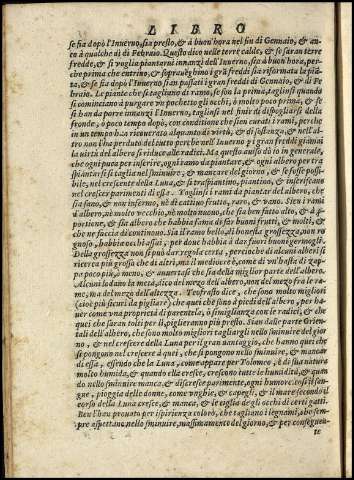 LIBRO
se sia dopò l'Inuerno, sia presto, & à buon'hora nel fin di Gennaio, & an-
co à qualche dì di Febraio. Questo dico nelle terre calde, & se saran terre
fredde, & si voglia piantarui innanzi dell'Inuerno, sia à buon'hora, per-
che prima che entrino, & soprauenghino i grã freddi sia riformata la piã-
ta, & se sia dopò l'Inuerno sian passati i gran freddi di Gennaio, & di Fe-
braio. Le piante che se tagliano di ramo, se son la prima, taglinsi quando
si cominciano à purgare vn pochetto gli occhi, ò molto poco prima, & se
si han da pare innanzi l'Inuerno, taglinsi nel finir di dispogliarsi della
fronde, ò poco tempo dopò, con conditione che sien curati i rami, perche
in vn tempo hãn ricouerato alquanto di virtù, & di sostanza, & nell'al-
tro non l'han perduto del tutto perche nell'Inuerno pe i gran freddi giamai
la virtù del albero si riduce alle radici. Ma questo auiso dò io in generale,
che ogni pura per inserire, ogni ramo da piantare, & ogni albero per tra
spiantarsi si tagli nel sminuire, & mancare del giorno, & se fosse possi-
bile, nel crescente della Luna, & si traspiantino, piantino, & inseriscano
nel crescer parimenti di essa. Toglinsi i rami da piantar del albero, che
sia sano, & non infermo, nè di cattiuo frutto, raro, & vano. Sieu i rami
d'albero, nè molto vecchio, nè molto nuouo, che sia ben fatto alto, & à p̃
portione, & sia albero che habbia fama de far buoni frutti, & molti, &
che ne faccia di continuo. Sia il ramo bello, di honesta grossezza, non ro
gnoso, habbia occhi assai, per done habbia à dar fuori buoni germogli.
Della grossezza non si può dar regola certa, percioche di alcuni alberi si
ricerca più grosse che di altri, ma il mediocre è, come di vn'hasta di zap-
pa poco più, ò meno, & auuertasi che sia della miglior parte dell'albero.
Alcuni lodano la metà, dico del mezo dell'albero, non del mezo fra le ra-
me, ma del mezo dell'altezza. Teofrasto dice, che sono molto migliori
(cioè più sicuri da pigliare) che quei che sono à piedi dell'albero, per ha-
uer come vna proprietà di parentela, ò simiglianza con le radici, & che
quei che saran tolti per lì, piglieranno più presto. Sian dalle parte Orien-
tali dell'albero, che sono molto migliori tagliargli nello sminuire del gior
no, & nel crescere della Luna per il gran vantaggio, che hanno quei che
si pongono nel crescere à quei, che si pongono nello sminuire, & mancar
di essa, essendo che la Luna, come appar per Tolomeo, è di sua natura
molto humida, & quando ella cresce, crescono tutte le humidità, & quan
do nello sminuire manca, & discresce parimente, ogni humore così il san-
gue, pioggia delle donne, come vnghie, & capegli, & il mare secondo il
corso della Luna cresce, & manca, & le ciglia de gli occhi di certi gatti.
Ben l'hau prouato per isperienza coloro, che tagliano i legnami, che sem-
pre aspettano nello sminuire, massimamente del giorno, & per conseguen-
te